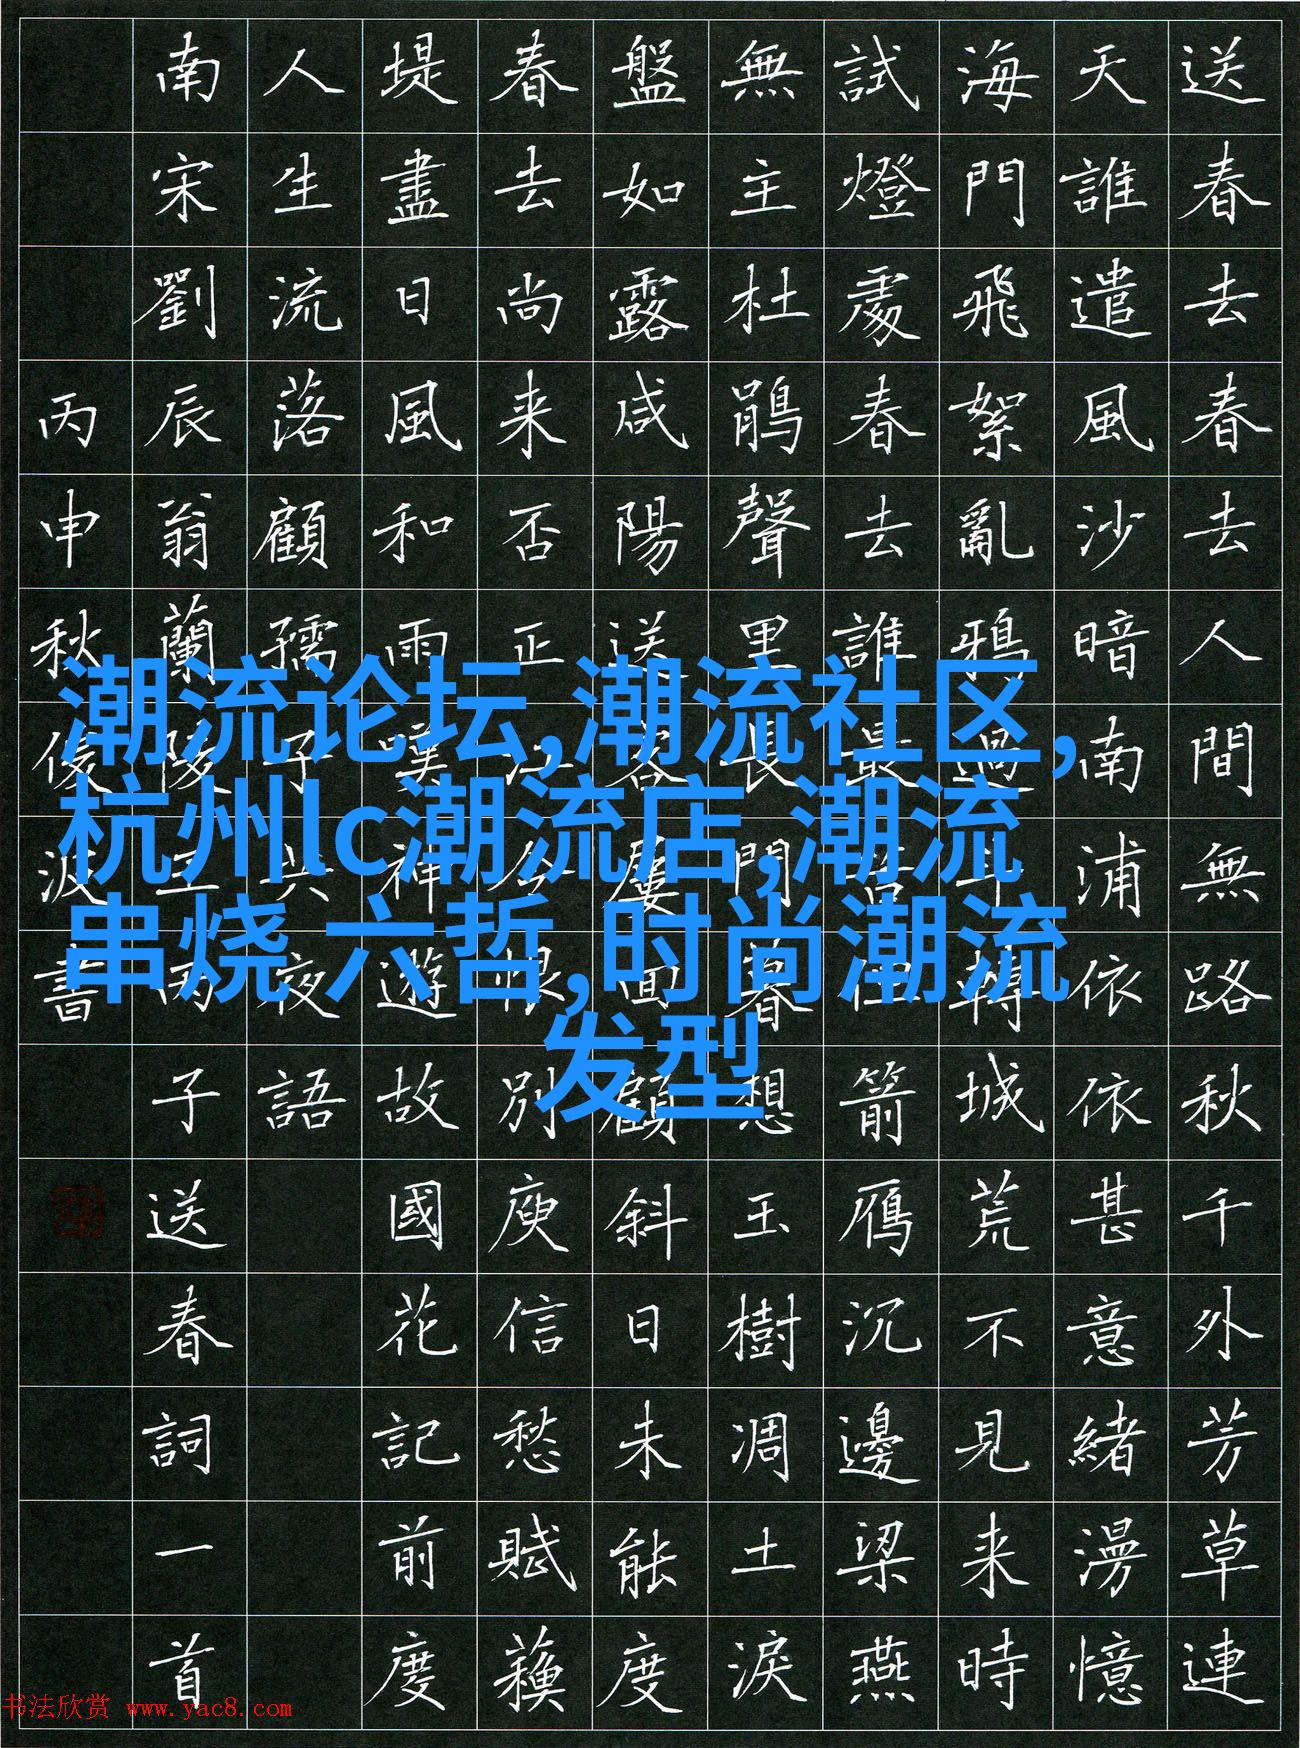 送春去春去人間無路秋千外芳草連
天誰遣風沙暗南浦依依甚意緒漫憶
海門飛絮亂鴉過斗轉城荒不見来時
試燈處春去誰最苦但箭雁沉邊梁燕
無主杜鵑聲里長門暮想玉樹凋土淚
盤如露咸陽送客屢回顧斜日未能度
春去尚来否正江令恨別庾信愁賦蘓
堤盡日風和雨嘆神遊故國花記前度
人生流落顧孺子共夜語
南宋劉辰翁蘭陵王丙子送春詞一首
丙申秋俊波書
潮流论坛,潮流社区,
杭州lc潮流店,潮流
串烧 六哲,时尚潮流
发型
书法欣赏 www.yac8.com